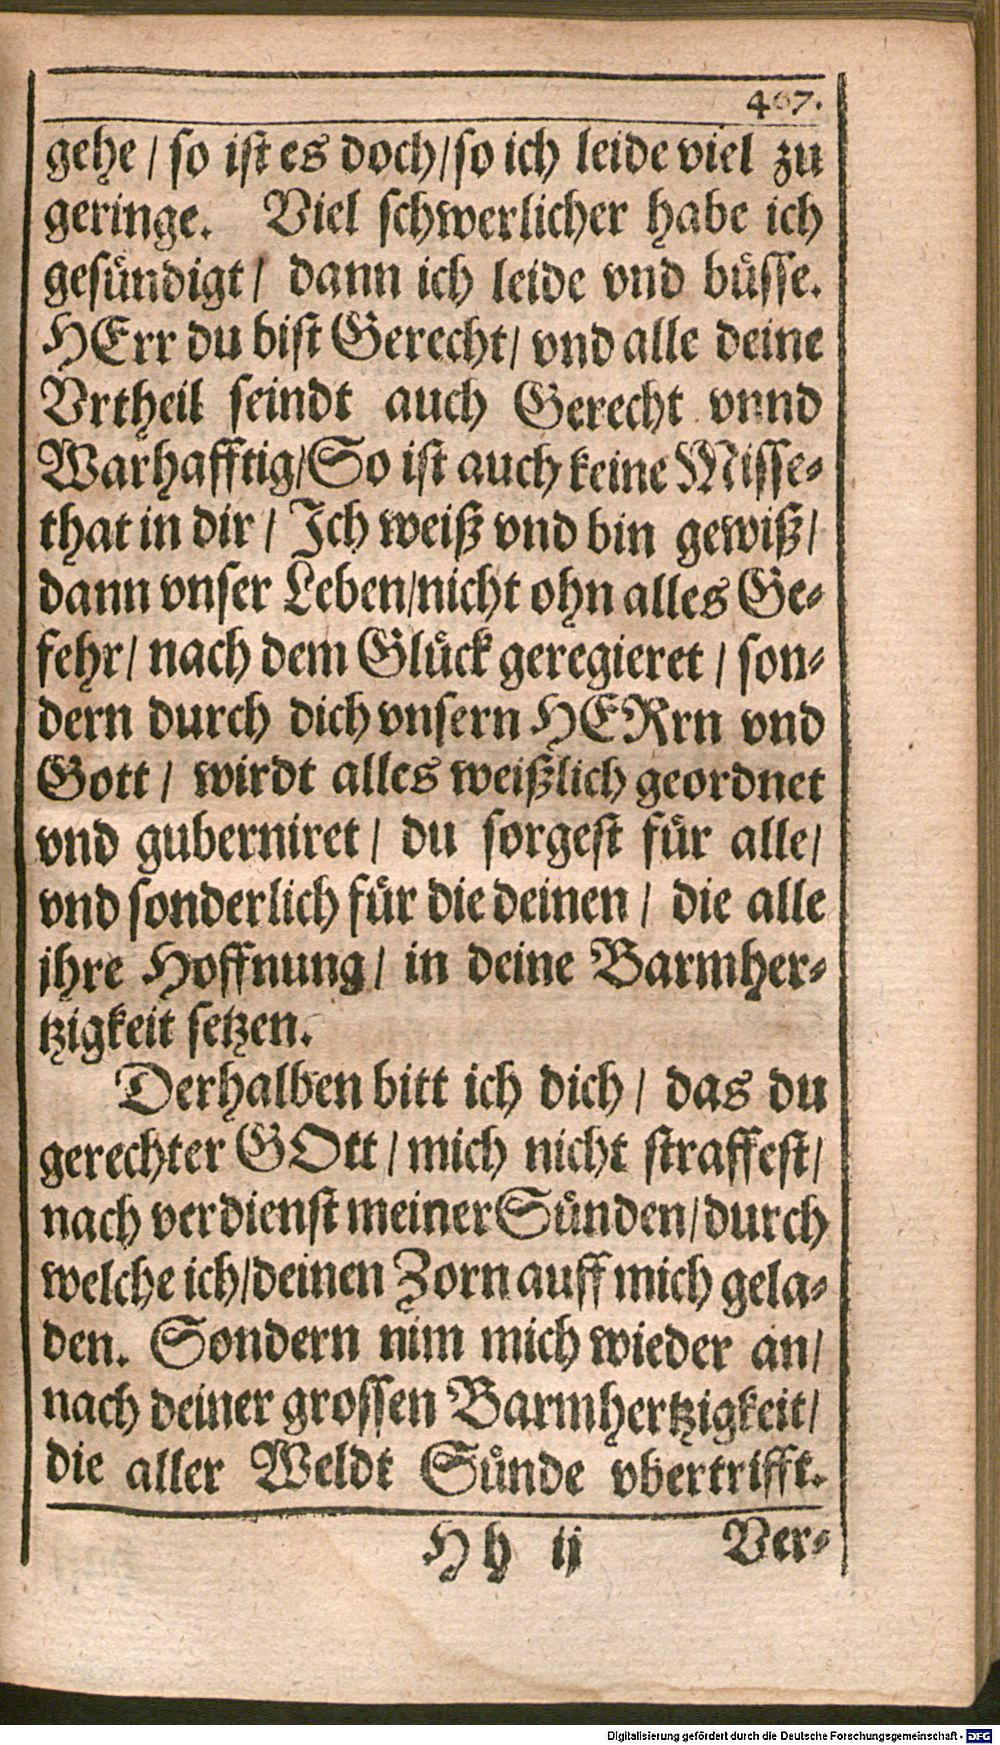 467.
gehe / so ist es doch/so ich leide viel zu
geringe. Viel schwerlicher habe ich
gesuͤndigt/ dann ich leide vnd buͤsse.
HErr du bist Gerecht/ vnd alle deine
Vrtheil seindt auch Gerecht vnnd
Warhafftig/So ist auch keine Misse-
that in dir / Ich weiß vnd bin gewiß/
dann vnser Leben/nicht ohn alles Ge-
fehr/ nach dem Gluͤck geregieret / son-
dern durch dich vnsern HERrn vnd
Gott / wirdt alles weißlich geordnet
vnd guberniret / du sorgest fuͤr alle/
vnd sonderlich fuͤr die deinen / die alle
ihre Hoffnung/ in deine Barmher-
tzigkeit setzen.
Derhalben bitt ich dich / das du
gerechter GOtt / mich nicht straffest/
nach verdienst meiner Suͤnden/durch
welche ich/deinen Zorn auff mich gela-
den. Sondern nim mich wieder an/
nach deiner grossen Barmhertzigkeit/
die aller Weldt Suͤnde vbertrifft.
H h ij Ver-
Digitalisierung gefördert durch die Deutsche Forschungsgemeinschaft - DFG